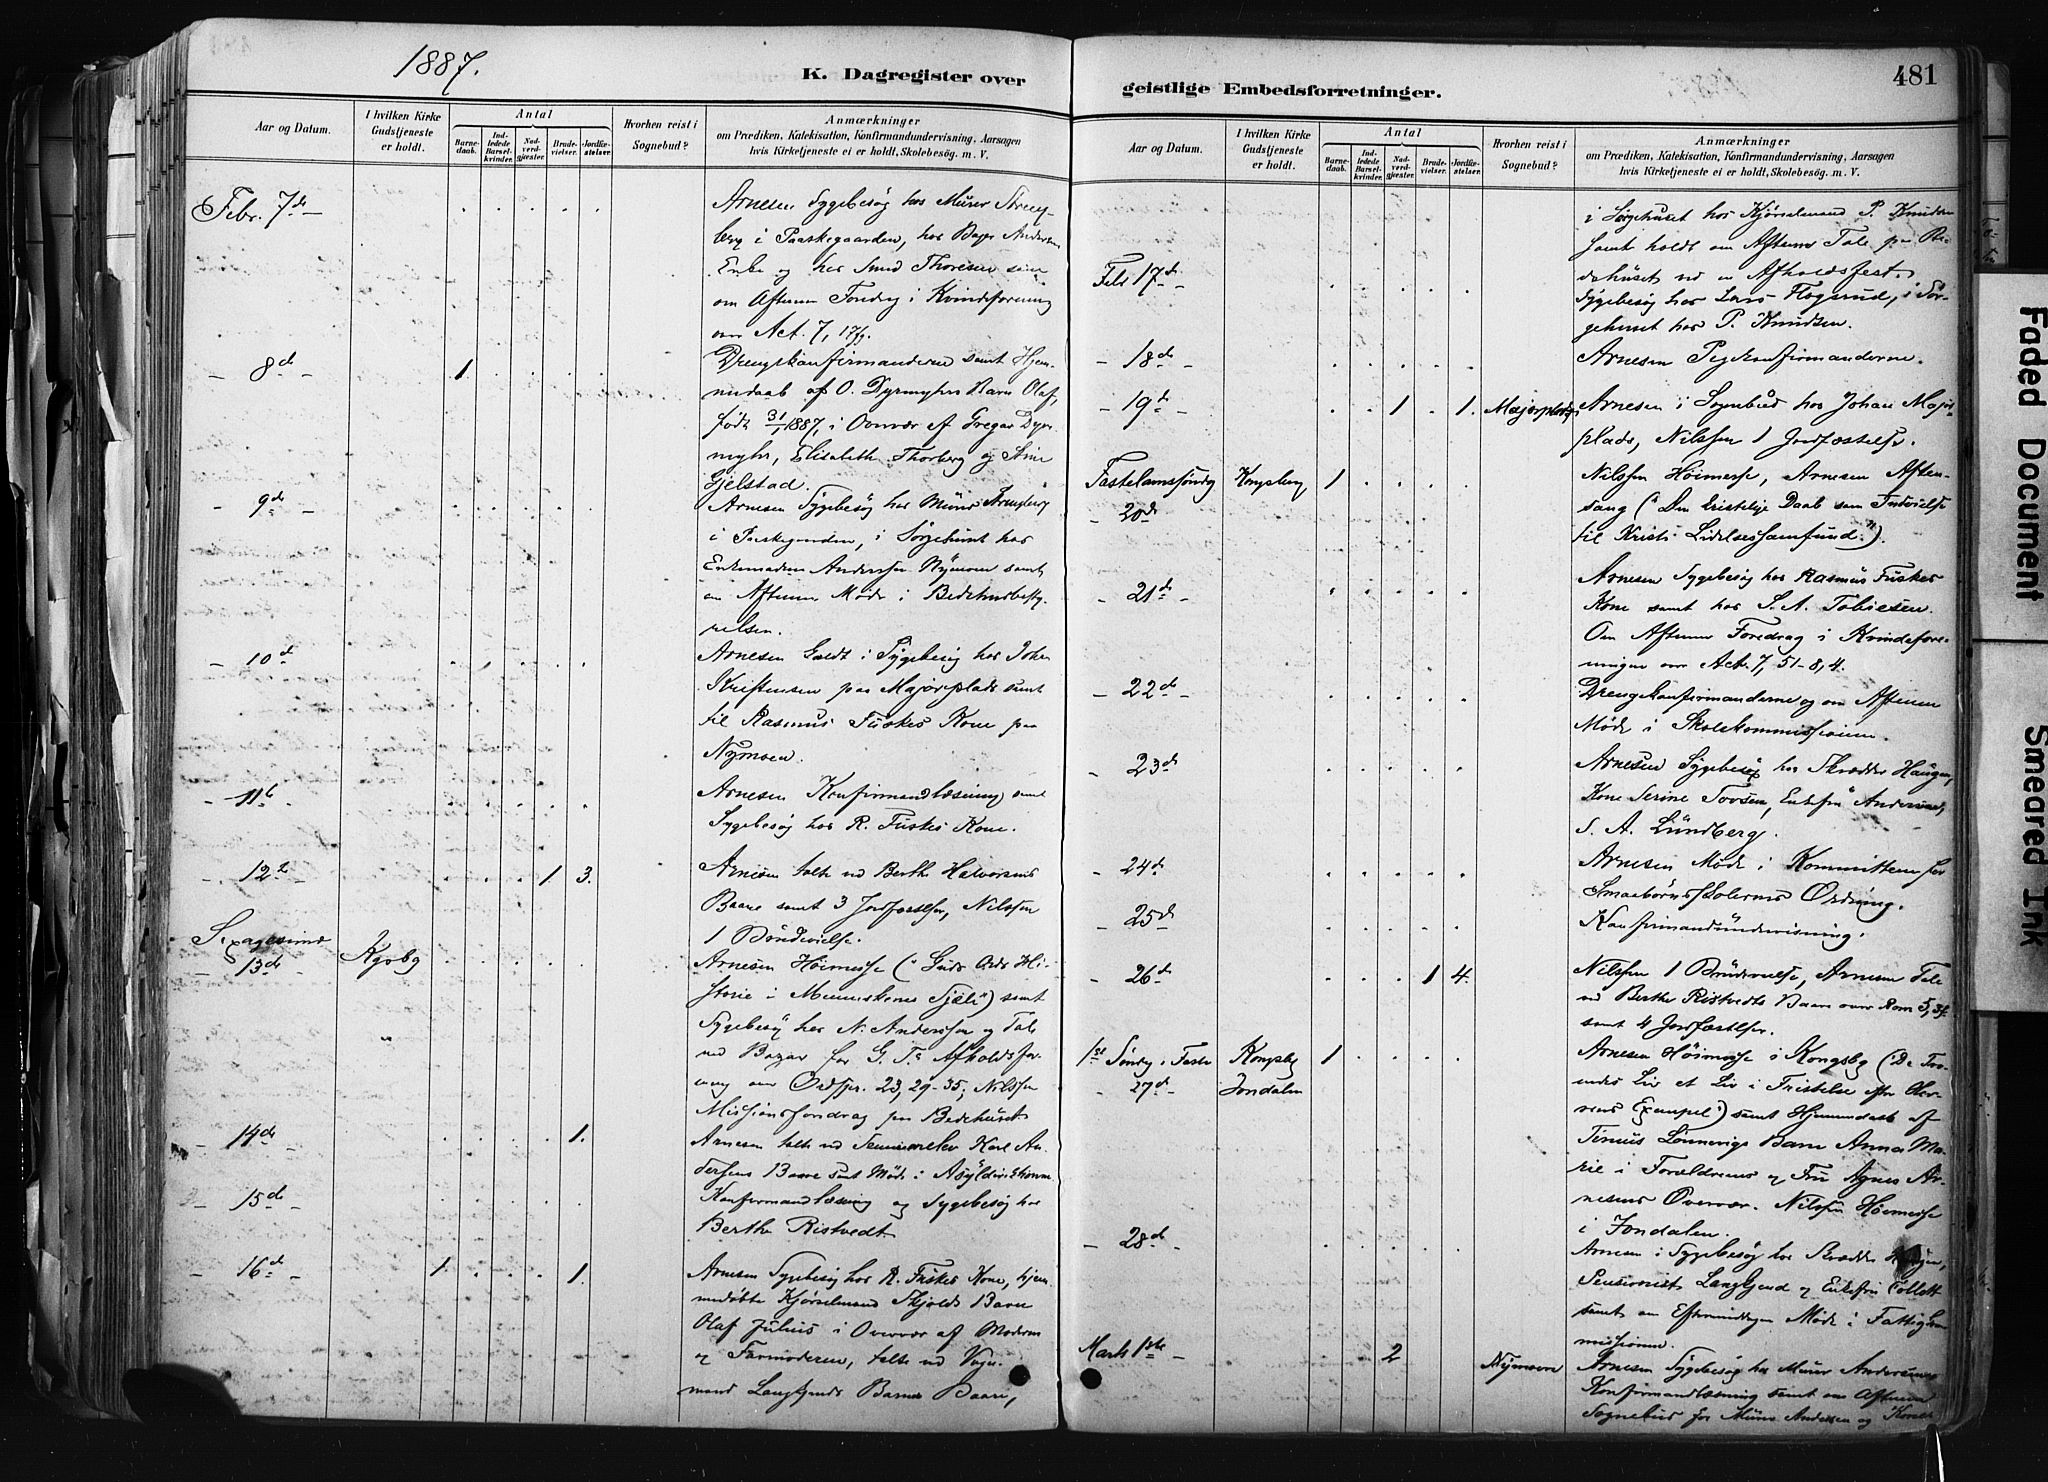 1887.
K. Dagregister over
Aar og Datum.
I hvilken Kirke Gudstjeneste er holdt.
Antal
Barnedaab.
Indledede Barselkvinder.
Nadverdgjæster.
Brudevielser.
Jordfæstelser.
Hvorhen reist i Sognebud?
Anmærkninger
om Prædiken, Katekisation, Konfirmandundervisning, Aarsagen
hvis Kirketjeneste ei er holdt, Skolebesøg. m. V.
Febr. 7de
Arnesen Sygebesøg hos Murer Streng-
berg i Paaskegaarden, hos Andersens
Enke og hos Smed Thoresen samt
om Aftenen Foredrag i Kvindeforening
over Act. 7, 17
8de 1.
Drengekonfirmanderne samt Hjem-
medaab af O. Dyrmyhrs Barn Olaf,
født 31/1 1887, i Overvær af Gregar Dyr-
myhr, Elisabeth Thorberg og Stine
Gjelstad.
9de
Arnesen Sygebesøg hos Murer Strengberg
i Paaskegaarden, i Sørgehuset hos
Enkemadam Andersen Nymoen samt
om Aftenen Møde i Bedehusbesty-
relsen.
10de
Arnesen Galdt i Sygebesøg hos Johan
Kristensen paa Majorplads samt
til Rasmus Fuskes Kone paa
Nymoen.
11te
Arnesen Konfirmandlæsning samt
Sygebesøg hos R. Fuskes Kone.
12te 1. 3.
Arnesen talte ved Berthe Halvorsens
Baare samt 3 Jordfæstelser, Nilssen
1 Brudevielse.
Sexagesima
13de Kgsbg
Arnesen Høimesse ("Guds Ords Hi-
storie i Menneskenes Sjæle") samt
Sygebesøg hos N. Anderssen og Tale
ved Bazar for G. T's Afholdsfor-
ening over Ordspr. 23, 29-35; Nilssen
Missionsforedrag paa Bedehuset.
14de 1.
Arnesen talte ved Karl An-
dersens Baare samt Møde i Asyldirektionen
15de
Konfirmandlæsning og Sygebesøg hos
Berthe Ristvedt
16de 1. 1.
Arnesen Sygebesøg hos R. Fuskes Kone, hjem-
medøbte Kjørselmand Skjolds Barn
Olaf Julius i Overvær af Moderen
og Farmoderen, talte ved Vogn-
mand Langgjords Barns Baare,
geistlige Embedsforretninger.
481
Aar og Datum.
I hvilken Kirke Gudstjeneste er holdt.
Antal
Barnedaab.
Indledede Barselkvinder.
Nadverdgjæster.
Brudevielser.
Jordfæstelser.
Hvorhen reist i Sognebud?
Anmærkninger
om Prædiken, Katekisation, Konfirmandundervisning, Aarsagen
hvis Kirketjeneste ei er holdt, Skolebesøg. m. V.
i Sørgehuset hos Kjørselmand P. Knudsen
samt holdt om Aftenen Tale paa Be-
dehuset ved en Afholdsfest.
Feb 17de
Sygebesøg hos Lars Flogsrud, i Sør-
gehuset hos P. Knudsen.
18de
Arnesen Pigekonfirmanderne.
19de 1 1. Majorplads
Arnesen i Sognebud hos Johan Major-
plads, Nilssen 1 Jordfæstelse.
Fastelavnssøndag Kongsberg 1
20de
Nilssen Høimesse, Arnesen Aften-
sang ("Den kristelige Daab som Indvielse
til Kristi Lidelsessamfund").
21de
Arnesen Sygebesøg hos Rasmus Fuskes
Kone samt hos S. A. Tobiesen.
Om Aftenen Foredrag i Kvindefore-
ningen over Act. 7, 51-8, 4.
22de
Drengekonfirmanderne og om Aftenen
Møde i Skolekommissionen.
23de
Arnesen Sygebesøg hos Skrædder Haugen,
Kone Serine Torsen, Enkefru Andersen,
S. A. Lundberg.
24de
Arnesen Møde i Kommitteen for
Smaabørnsskolernes Ordning.
25de
Konfirmandundervisning.
26de 1 4.
Nilssen 1 Brudevielse, Arnesen Tale
ved Berthe Ristvedts Baare over Rom 5,
samt 4 Jordfæstelser.
1ste Søndag i Faste Kongsbg 1
27de Jondalen
Arnesen Høimesse i Kongsbg ("De Tro-
endes Liv et Liv i Fristelse efter Her-
rens Exempel") samt Hjemmedaab af
Tinius Lønnevigs Barn Anna Ma-
rie i Forældrenes og Fru Agnes Ar-
nesens Overvær. Nilssen Høimesse
i Jondalen.
28de
Arnesen i Sygebesøg hos Skrædder Haugen,
Pensionist Langgjord og Enkefru Collett
samt om Eftermiddagen Møde i Fattigkom-
missionen.
Marts 1ste 2 Nymoen
Arnesen Sygebesøg hos Murer Andersens
Konfirmandlæsning samt om Aftenen
Sognebud for Murer Andersen og Kone
Faded Document
Smeared Ink